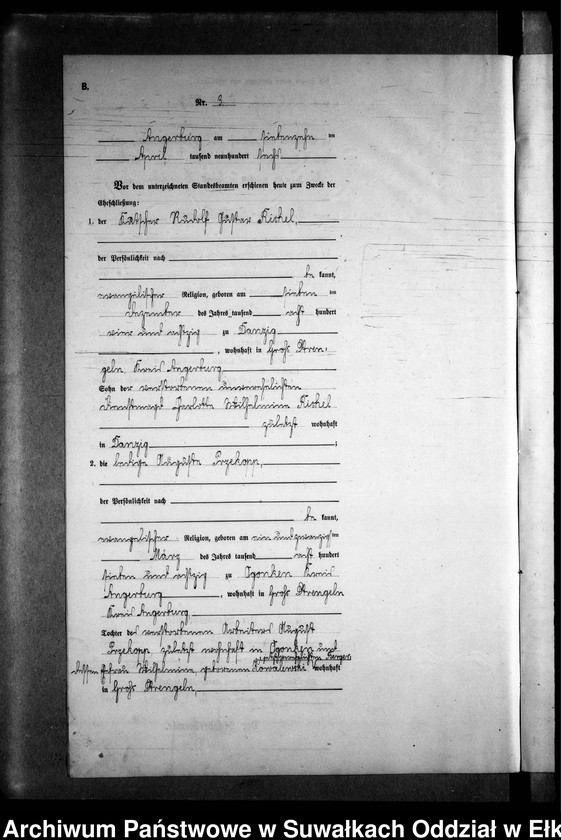 B.
Nr. 3
Angerburg am siebenzehn ten
April tausend neunhundert sechs
Vor dem unterzeichneten Standesbeamten erschienen heute zum Zwecke der
Eheschließung:
1. der Kutscher Rudolf Gustav Kischel,
der Persönlichkeit nach
be kannt,
evangelischer Religion, geboren am sieben ten
Dezember des Jahres tausend acht hundert
vier und achtzig zu Danzig
, wohnhaft in Groß Stren-
geln, Kreis Angerburg
Sohn der verstorbenen unverehelichten
Dienstmagd Charlotte Wilhelmine Kischel
zuletzt wohnhaft
in Danzig ;
2. die ledige Auguste Przekopp,
der Persönlichkeit nach
be kannt,
evangelischer Religion, geboren am ein und zwanzig ten
März des Jahres tausend acht hundert
sieben und achtzig zu Ogonken Kreis
Angerburg , wohnhaft in Groß Strengeln
Kreis Angerburg
Tochter des verstorbenen Arbeiters August
Przekopp zuletzt wohnhaft in Ogonken und
dessen Ehefrau Wilhelmine, geborenen Kowalewski wohnhaft
in Groß Strengeln,
Archiwum Państwowe w Suwałkach Oddział w Ełk